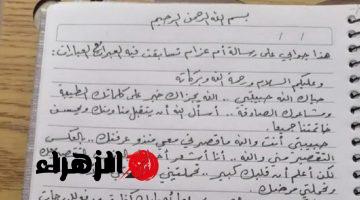 بسم الله الرحمن الرحيم
هذا جوابي على رسالة أم عزام تسابقت فيه العبرات العبارات:
وعليكم السلام ورحمة الله وبركاته
حياك الله حبيبتي .. الله يجزاك خير على كلماتك الطيبة
ومشاعرك الصادقة .. أسأل الله أن يتقبل منا ومنك ويحسن
خاتمتنا جميعا.
حبيبتي أنتِ والله ما قصرتي معي منذو عرفتك .. بالعكس
التقصير مني والله .. أنا أشعر
لكن أعلم أن قلبك كبير .. تحملتيني
وتحملتي مرضك.
الزهراء